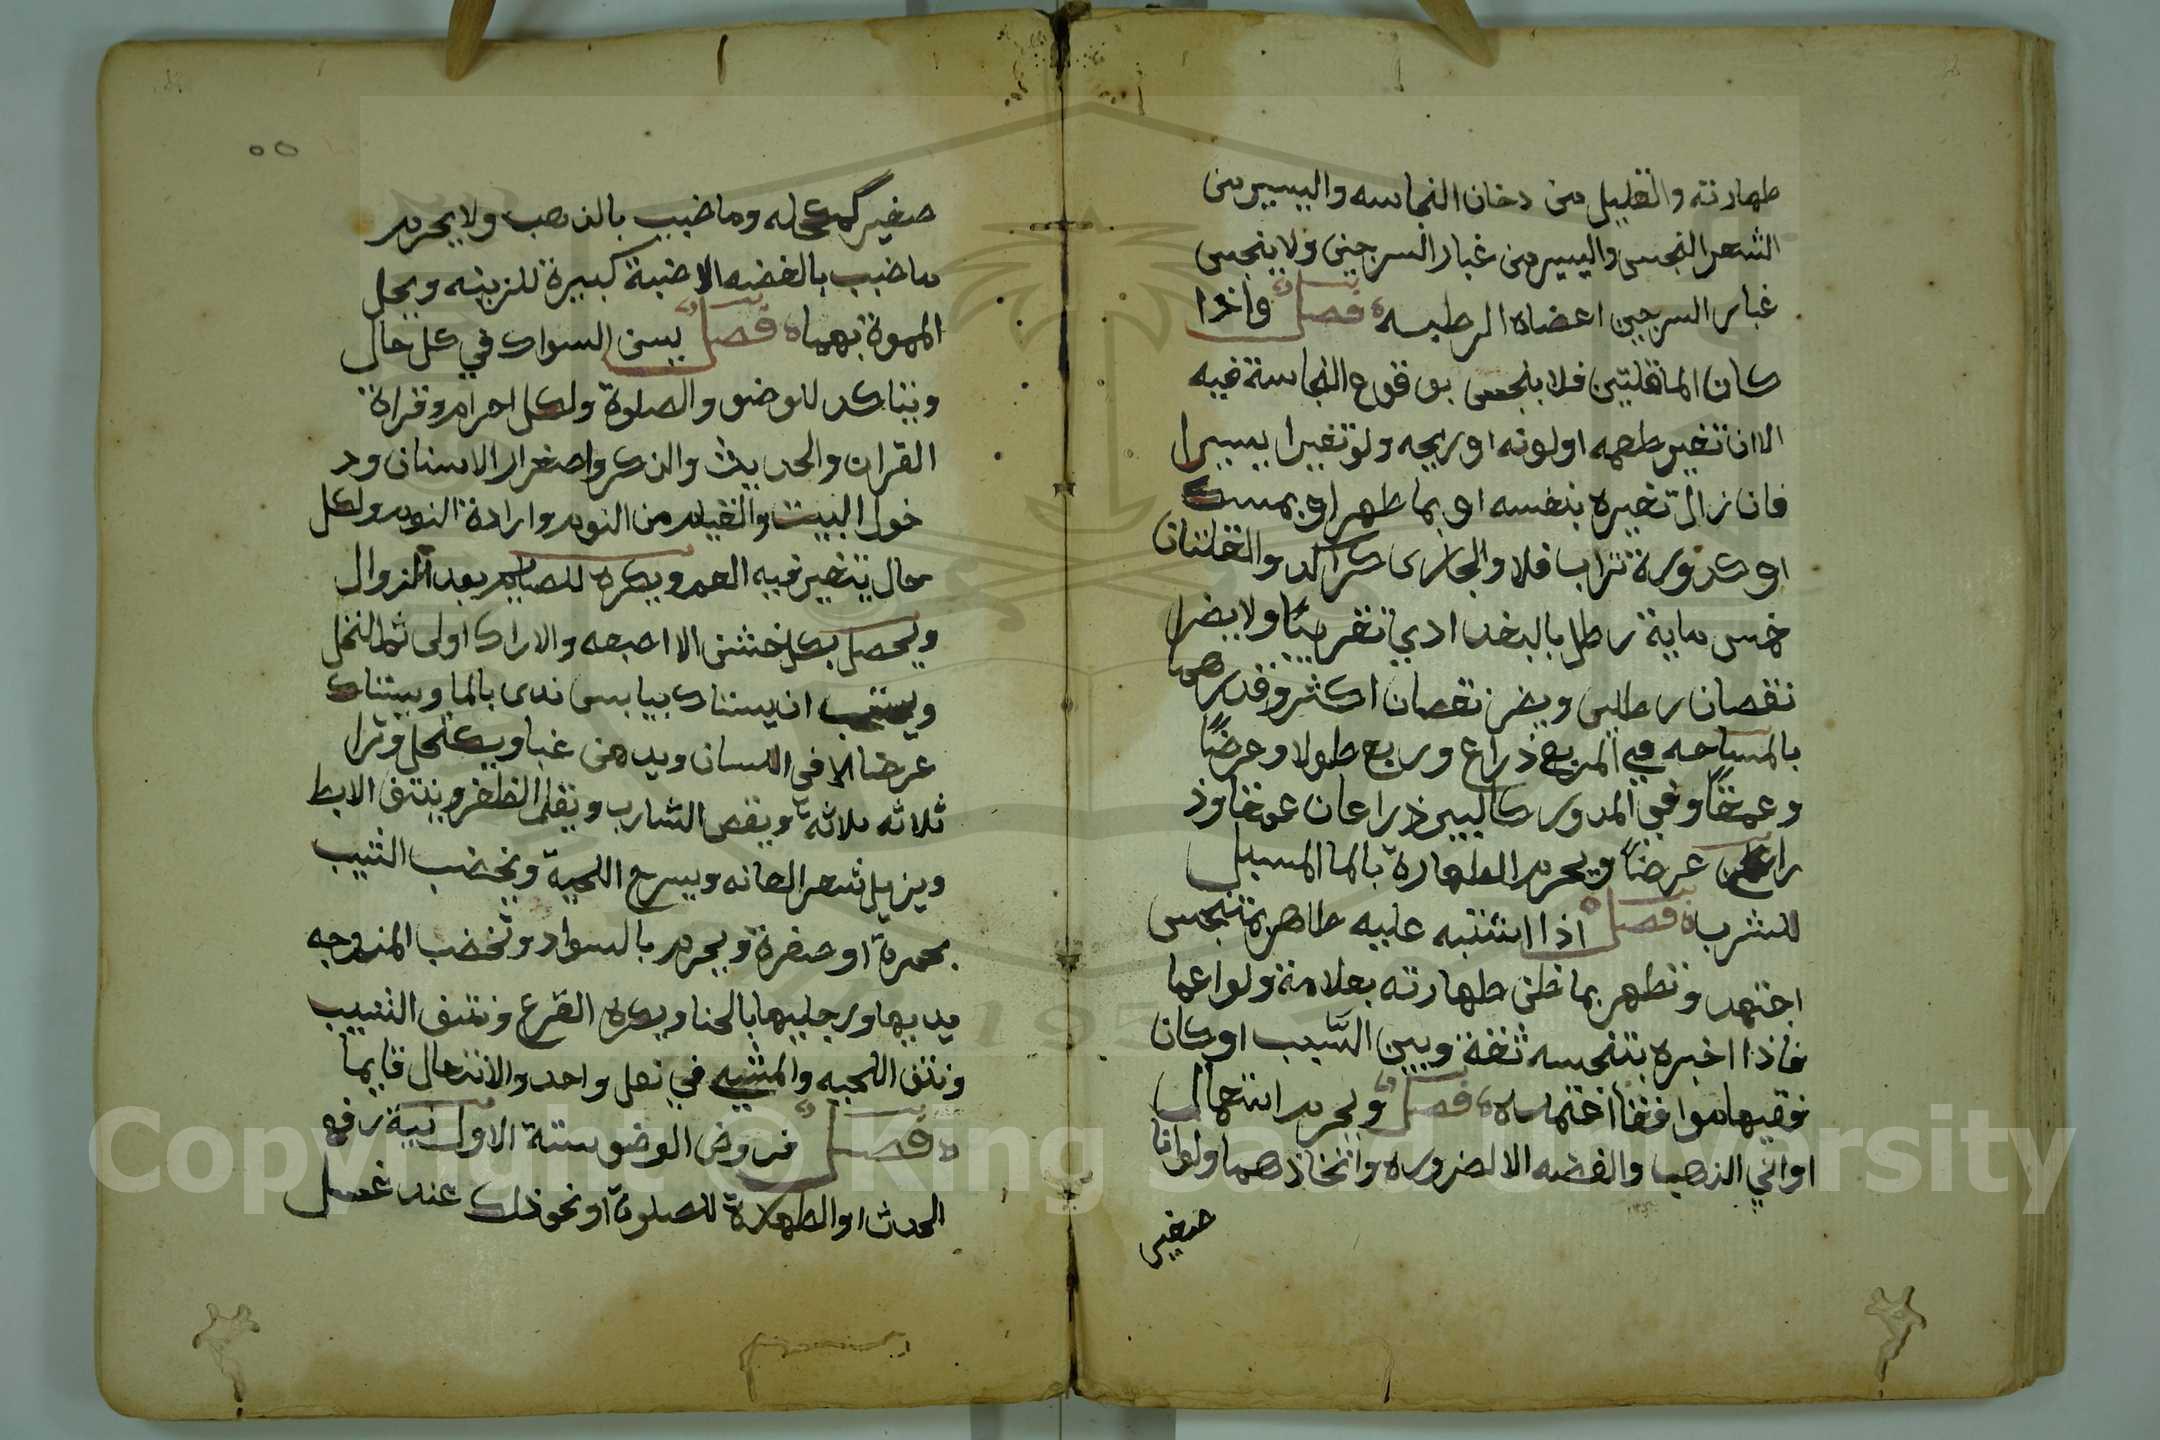 طهارته والقليل من دخان النجاسه واليسير من
الشعر النجس واليسير من غبار السرجين ولا ينجس
غبار السرجين اعضاه الرطبه فصل واذا
كان الما قلتين فلا ينجس بوقوع النجاسة فيه
الا ان تغير طعمه او لونه او ريحه ولو تغيرا يسيرا
فان زال تغيره بنفسه او بما طهر او بمسك
او كدورة تراب فلا والجارى كراكد والقلتان
خمس ماية رطل بالبغدادي تقريبًا ولا يضر
نقصان رطلين ويضر نقصان اكثر وقدرهما
بالمساحه في المربع ذراع وربع طولا وعرضًا
وعمقًا وفي المدور كالبير ذراعان عمقا وذ
راع عرضًا ويحرم الطهارة بالما المسبل
للشرب فصل اذا اشتبه عليه طاهر بمتنجس
اجتهد وتطهر بما ظن طهارته بعلامة ولو اعما
فاذا اخبره بتنجسه ثقة وبين السبب او كان
فقيها موافقا اعتمده فصل ويحرم استعمال
اواني الذهب والفضه الا لضروره واتخاذهما ولو انا
صغير
٥٥
صغير كمكحله وما ضبب بالذهب ولا يحرم
ما ضبب بالفضه الا ضبة كبيرة للزينه ويحل
المموة بهما فصل يسن السواك في كل حال
ويتاكد للوضو والصلوة ولكل احرام وقراة
القران والحديث والذكر واصفرار الاسنان ود
خول البيت والقيام من النوم وارادة النوم ولكل
حال يتغير فيه الفم ويكره للصايم بعد الزوال
ويحصل بكل خشن الا اصبعه والاراك اولى ثم النخل
ويستحب ان يستاك بيابس ندى بالما ويستاك
عرضا الا في اللسان ويدهن غبا ويكتحل وترا
ثلاثه ثلاثه ويقص الشارب ويقلم الظفر وينتف الابط
ويزيل شعر العانه ويسرح اللحية ويخضب الشيب
بحمرة او صفرة ويحرم بالسواد وتخضب المزوجه
يديها ورجليها بالحنا ويكره القزع ونتف الشيب
ونتف اللحيه والمشي في نعل واحد والانتعال قايما
فصل فروض الوضو ستة الاول نية رفع
الحدث او الطهارة للصلوة او نحو ذلك عند غسل
Copyright © King Saud University